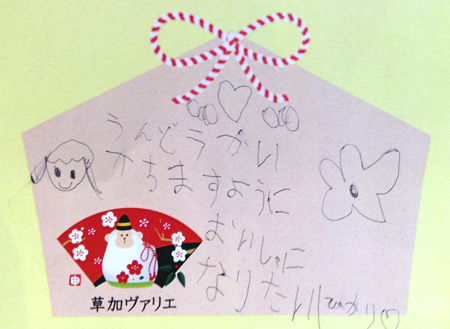 うんどうかい
かちますように
おいしゃに
なりたい
ひかり
申
草加ヴァリエ